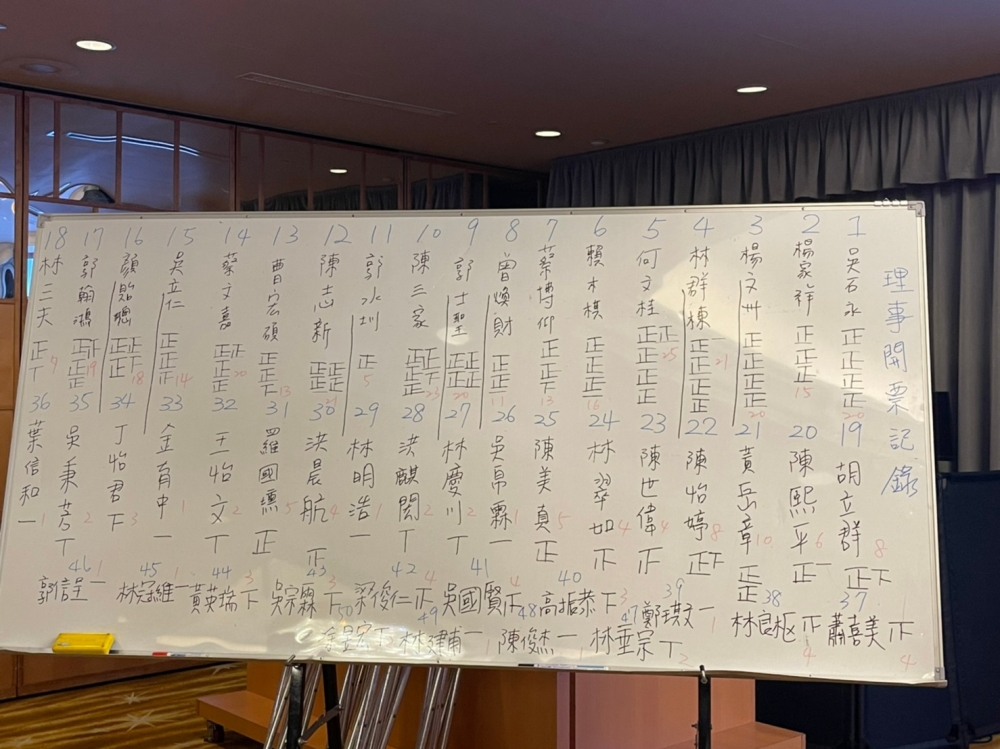 理事開票記錄
1 吳石永 正正正正 20
2 楊家祥 正正正 15
3 楊文州 正正正正 20
4 林群棟 正正正正一 21
5 何文桂 正正正正正 25
6 賴木棋 正正正一 16
7 蔡博仰 正正下 13
8 曾煥財 正正一 11
9 郭士聖 正正正正 20
10 陳三家 正正正正下 23
11 郭水圳 正 5
12 陳志新 正正正正一 21
13 曹宏碩 正正下 13
14 蔡文嘉 正正正正 20
15 吳立仁 正正 14
16 顏貽聰 正正正下 18
17 郭翰鴻 正正正 19
18 林三夫 正丅
19 胡立群 正下 8
20 陳熙平 正一 6
21 黃岳章 正正 10
22 陳怡婷 正下
23 陳世偉 4
24 林翠如 4
25 陳美真 正 5
26 吳帛霖 一 1
27 林慶川 丅 2
28 洪麒閔 丅 2
29 林明浩 一 1
30 洪晨航 4
31 羅國 正 5
32 王怡文 丅 2
33 金育中 一 1
34 丁怡君 下 3
35 吳秉芳 丅 2
36 葉信和 一 1
37 蕭喜美 4
38 林良枢 4
39 鄭琪文 一 1
40 高振恭 下 3
41 吳國賢 4
42 梁俊仁 4
43 吳宗霖 下 3
44 黃英瑞 下 3
45 林冠維 一 1
46 郭誼呈 一 1
47 林亜宗 丅 2
48 陳俊杰 一 1
49 林建甫 一 1
50